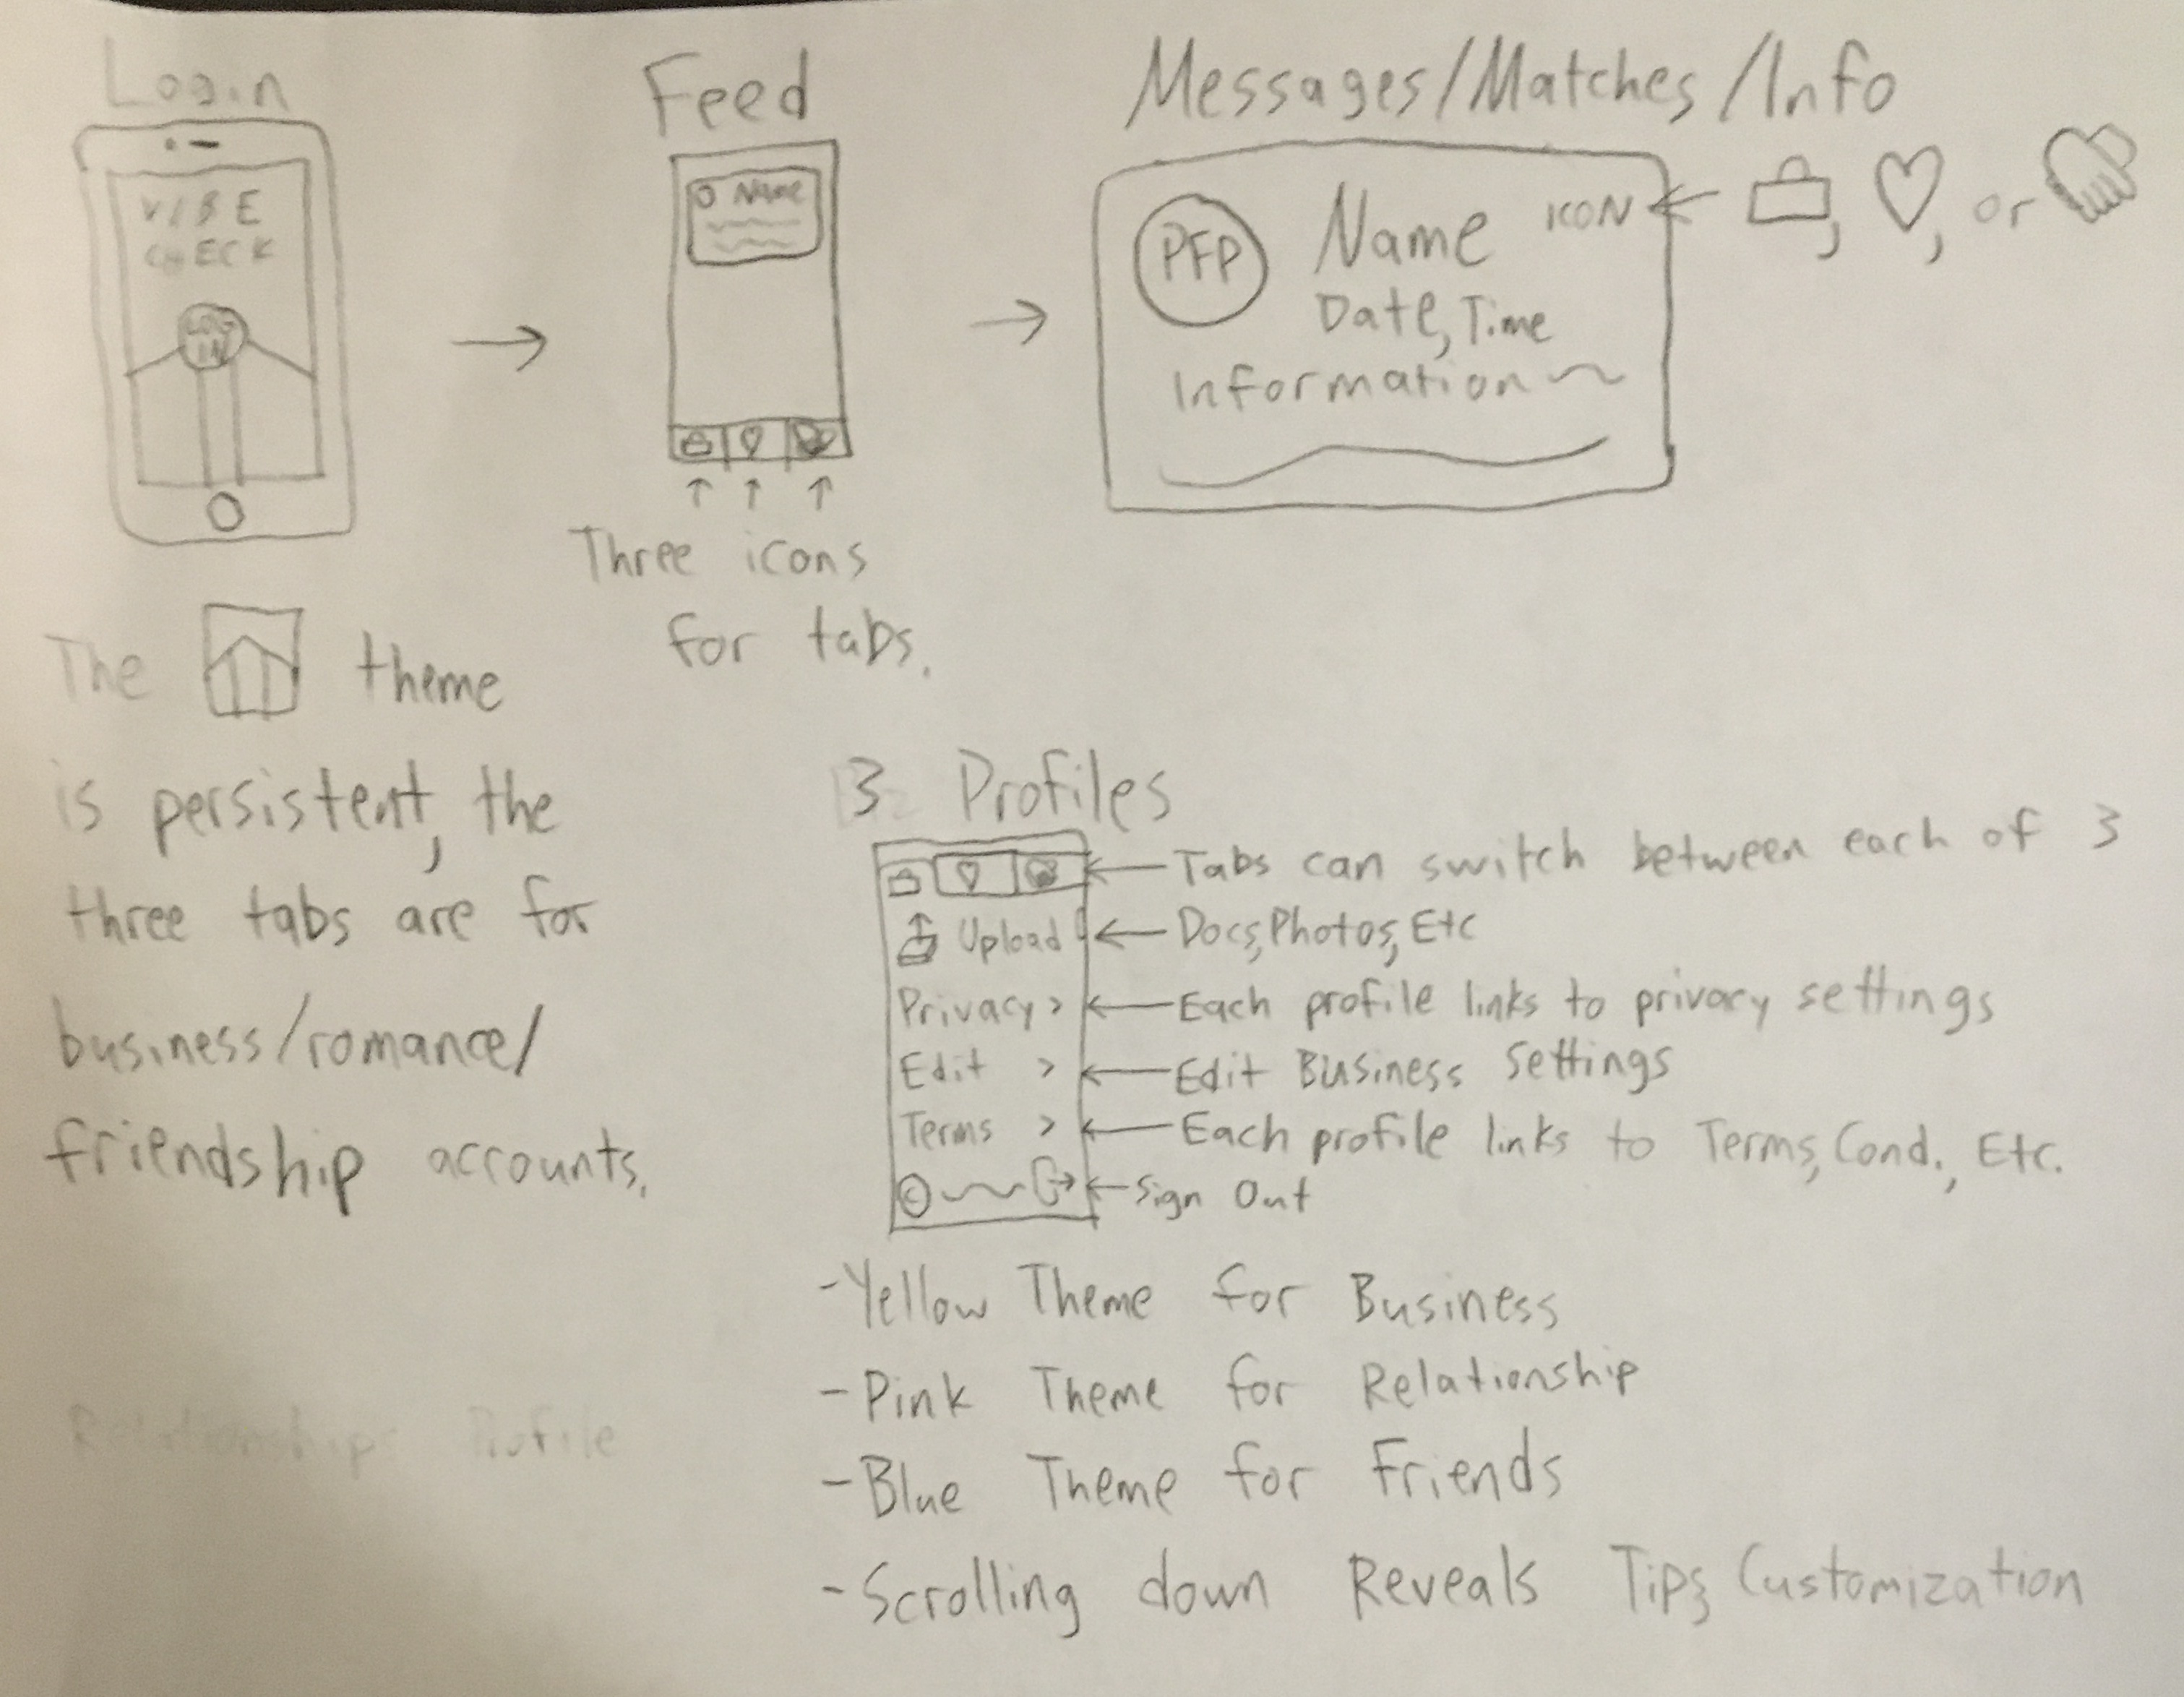 Login
VIBE
CHECK
LOG
IN
Feed
Name
Three icons
for tabs.
Messages/Matches/Info
PFP
Name
ICON
, , or
Date, Time
Information
The theme
is persistent, the
three tabs are for
business/romance/
friendship accounts.
Relationships Profile
3 Profiles
Tabs can switch between each of 3
Upload
Docs, Photos, Etc
Privacy >
Each profile links to privacy settings
Edit >
Edit Business Settings
Terms >
Each profile links to Terms, Cond., Etc.
©
Sign Out
-Yellow Theme for Business
-Pink Theme for Relationship
-Blue Theme for Friends
-Scrolling down Reveals Tips, Customization